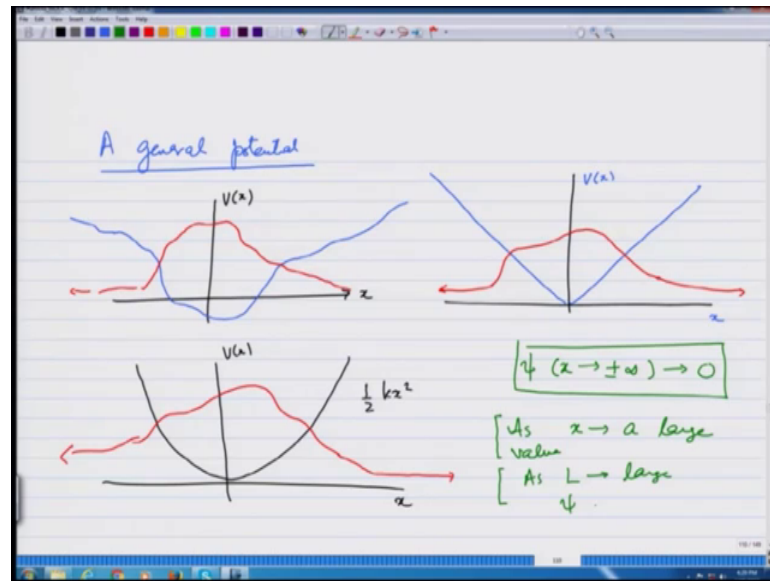 File Edit View Insert Actions Tools Help
A general potential
V(x)
x
V(x)
x
V(x)
½ kx²
x
ψ (x → ±∞) → 0
As x → a large
value
As L → large
ψ